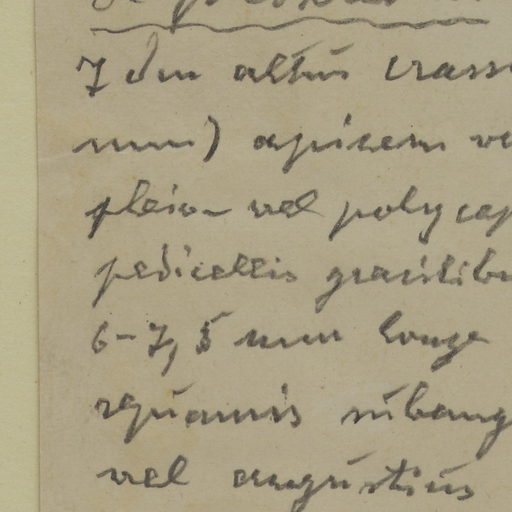 7 dm altus crass
mm) apicem ve
pleio- vel polycap
pedicellis gracilibu
6-7,5 mm longe
squamis subang
vel angustius